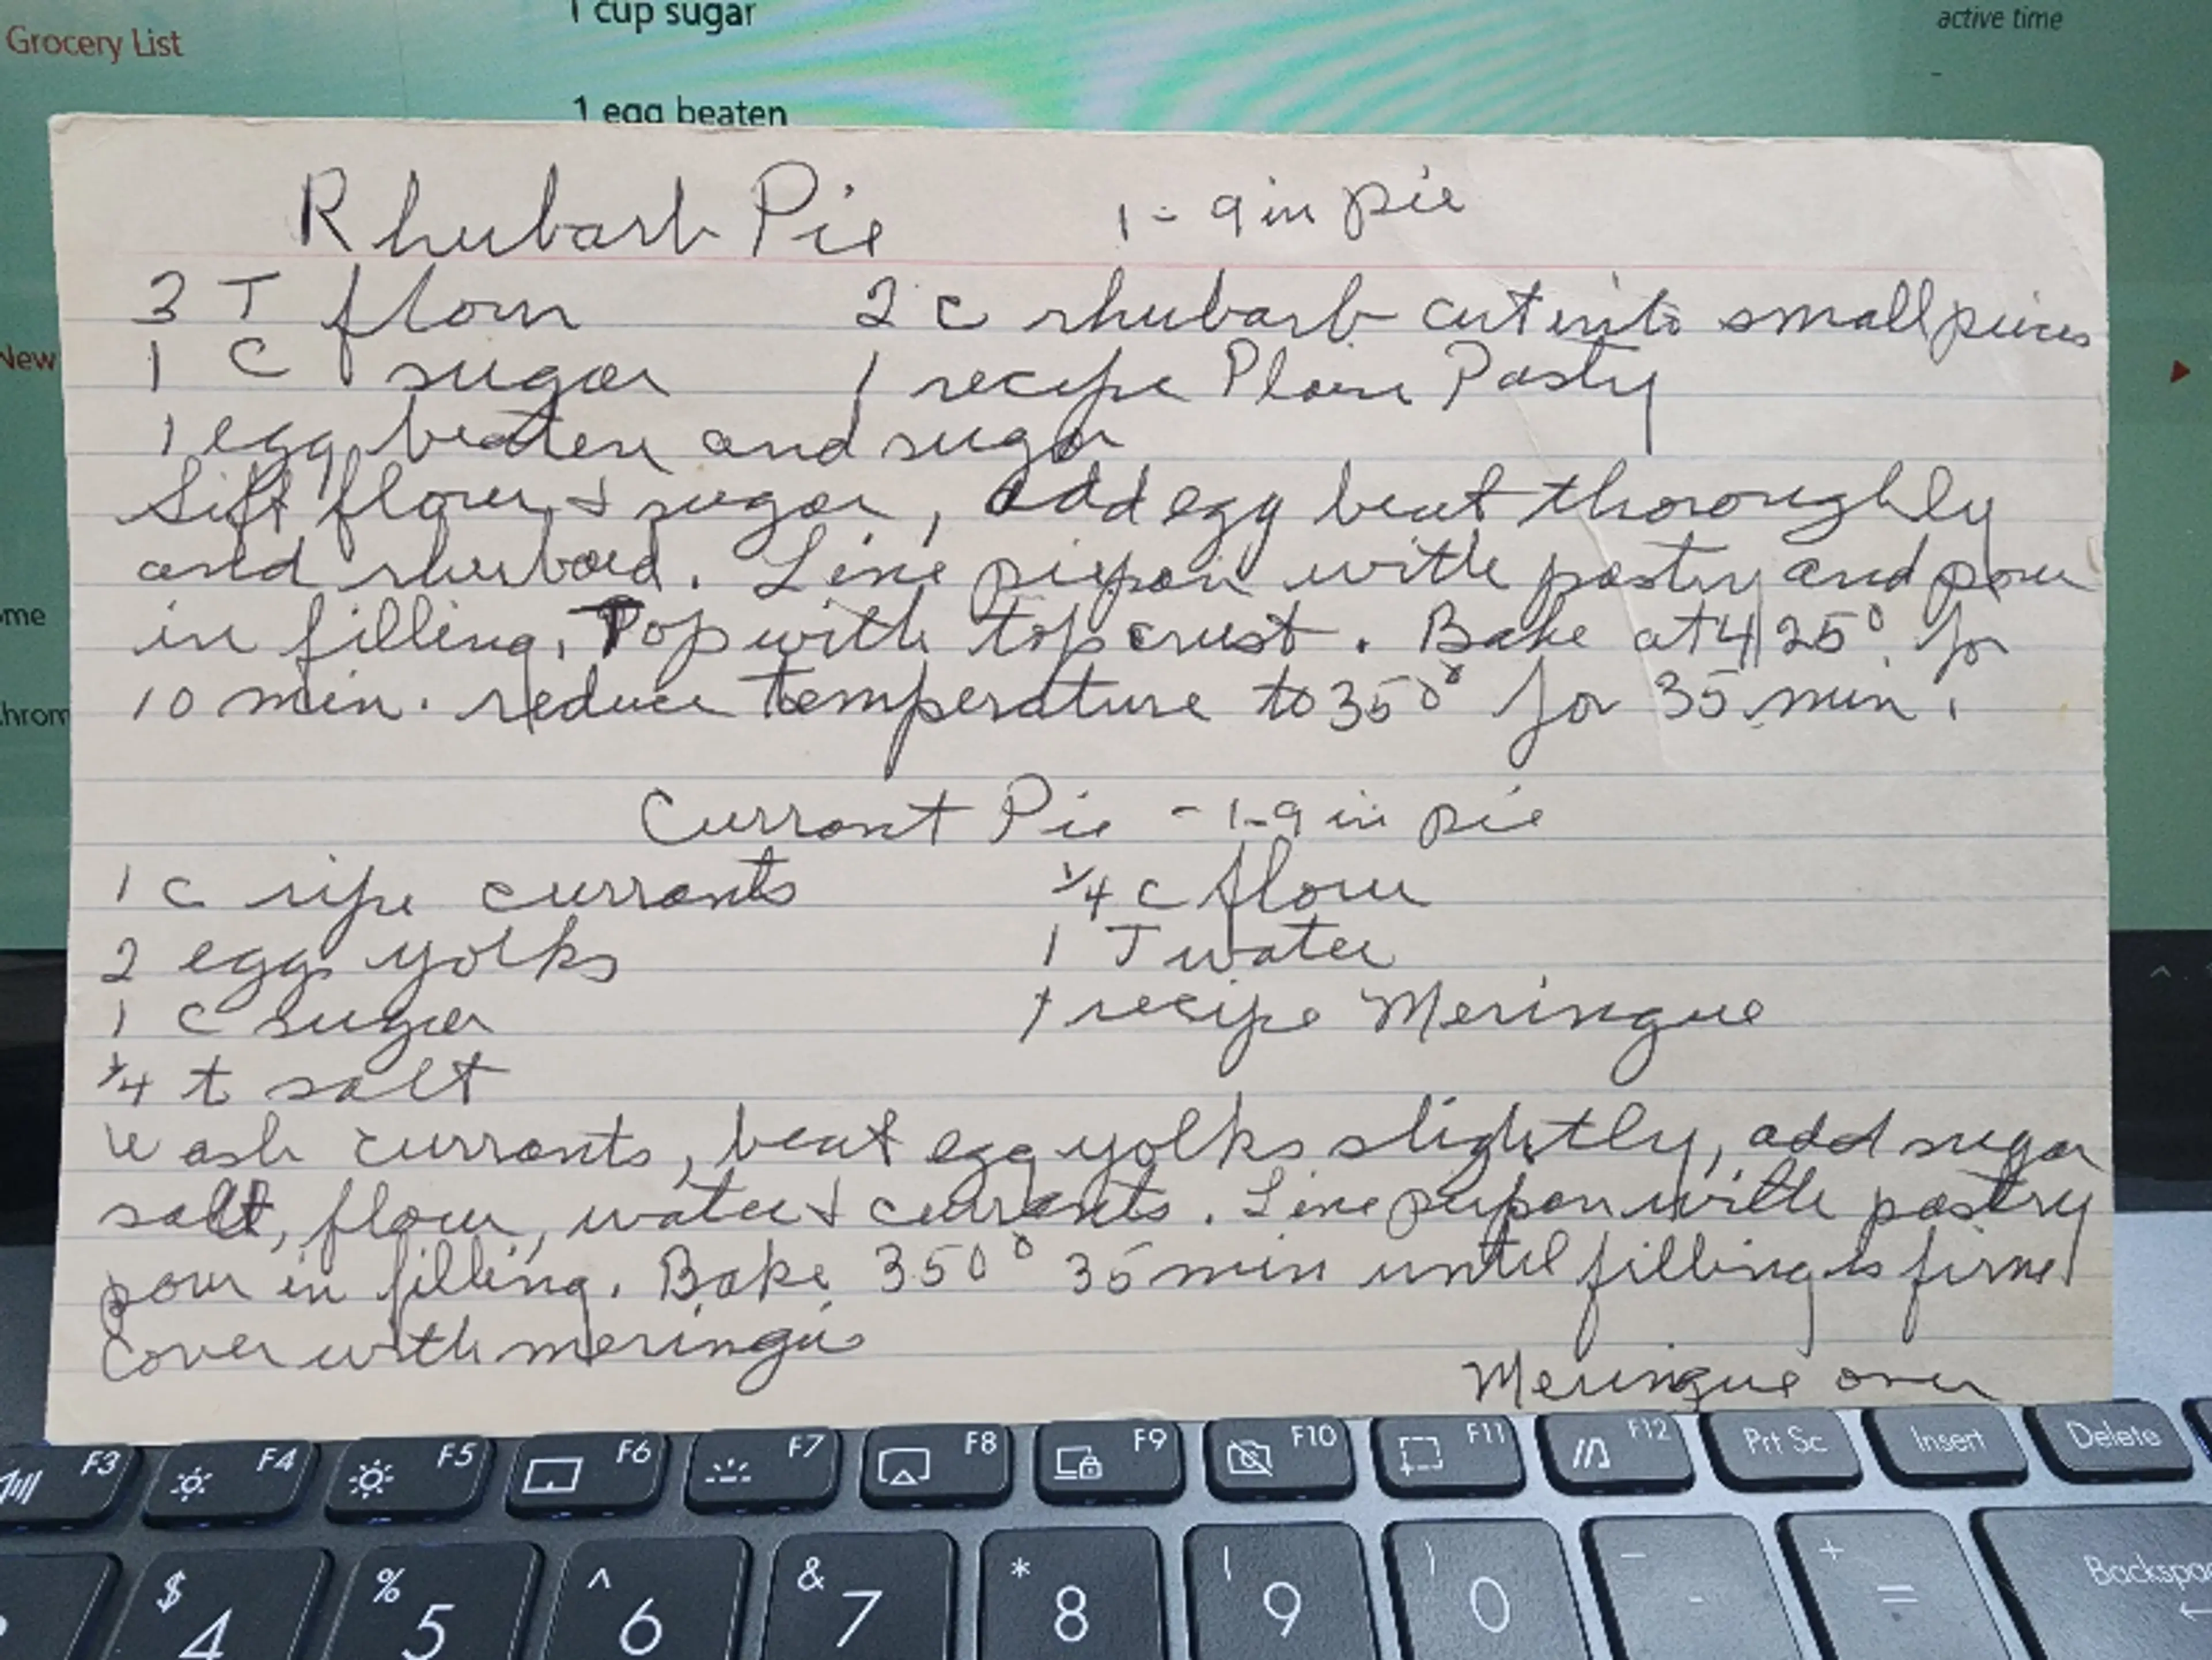 Grocery List
1 cup sugar
active time
1 egg beaten
New
ome
hrom
Rhubarb Pie 1 - 9 in pie
3 T flour 2 c rhubarb cut into small pieces
1 C sugar 1 recipe Plain Pasty
1 egg beaten and sugar
Sift flour & sugar, add egg beat thoroughly
and rhubard. Line piepan with pastry and pour
in filling. Top with top crust. Bake at 425° for
10 min. reduce temperature to 350° for 35 min.
Currant Pie - 1-9 in pie
1 c ripe currants 1/4 c flour
2 egg yolks 1 T water
1 c sugar 1 recipe Meringue
1/4 t salt
Wash currants, beat egg yolks slightly, add sugar
salt, flour, water & currants. Line piepan with pastry
pour in filling. Bake 350° 35 min until filling is firm
Cover with meringue
Meringue over
F3 F4 F5 F6 F7 F8 F9 F10 F11 F12 Prt Sc Insert Delete
$ 4 % 5 ^ 6 & 7 * 8 ( 9 ) 0 _ - + = Backspa